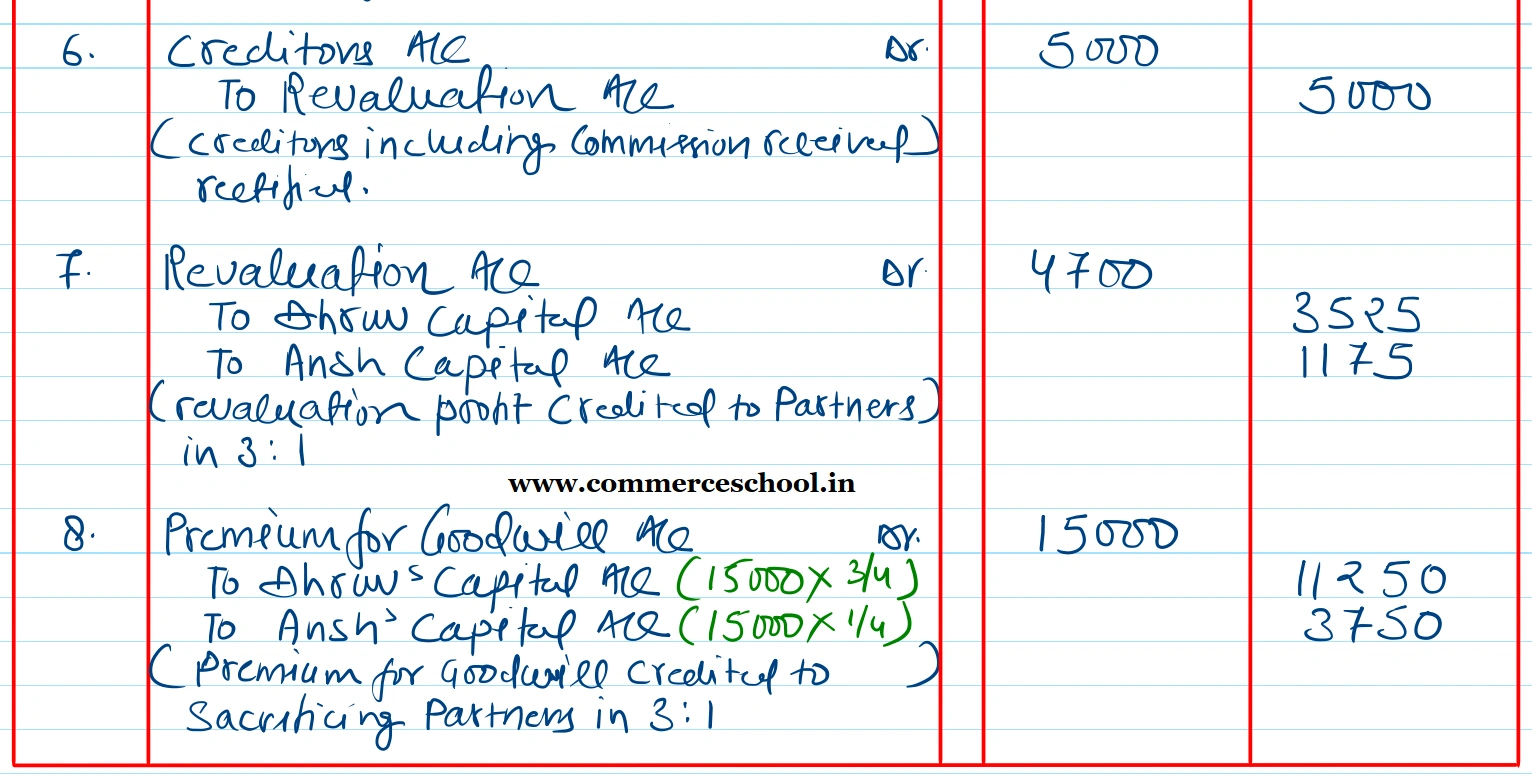 6. Creditors A/c Dr. 5000
To Revaluation A/c 5000
(creditors including Commission received)
rectified.
7. Revaluation A/c Dr. 4700
To Dhruv Capital A/c 3525
To Ansh Capital A/c 1175
(revaluation profit Credited to Partners)
in 3:1
www.commerceschool.in
8. Premium for Goodwill A/c Dr. 15000
To Dhruv's Capital A/c (15000 X 3/4) 11250
To Ansh's Capital A/c (15000 X 1/4) 3750
(Premium for Goodwill Credited to)
Sacrificing Partners in 3:1